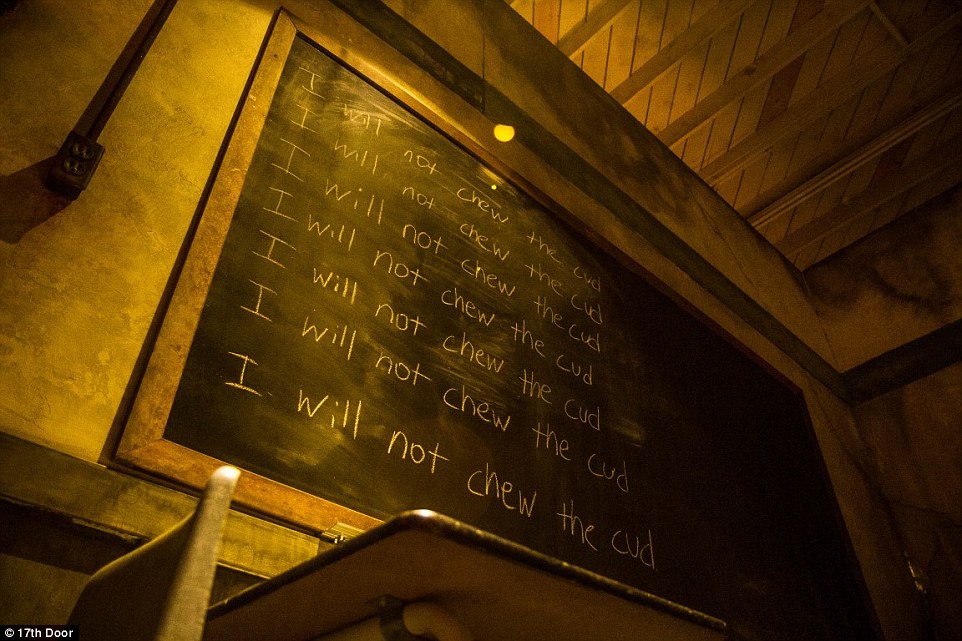 I will not chew the cud
I will not chew the cud
I will not chew the cud
I will not chew the cud
I will not chew the cud
I will not chew the cud
I will not chew the cud
© 17th Door